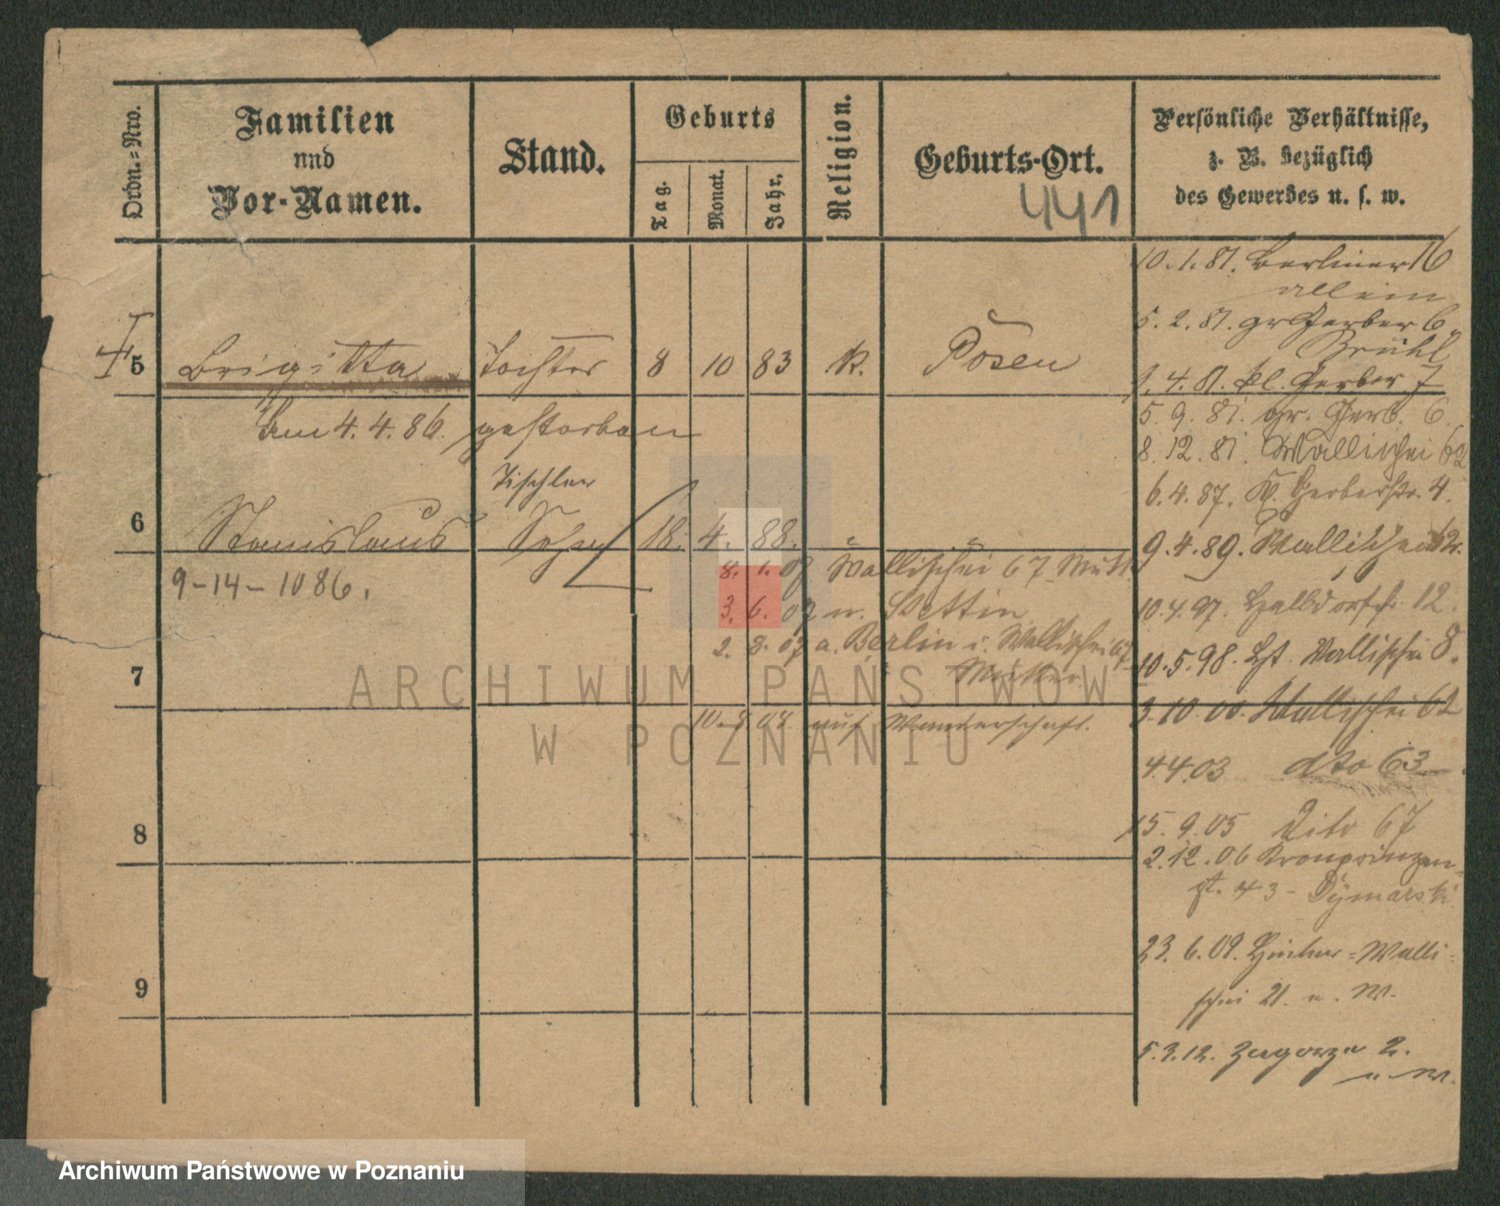 Ordn.=Nro.
Familien
und
Vor-Namen.
Stand.
Geburts
Tag.
Monat.
Jahr.
Religion.
Geburts-Ort.
441
Persönliche Verhältnisse,
z. B. bezüglich
des Gewerbes u. s. w.
5 Brigitta Tochter 8 10 83 K. Posen
am 4.4.86. gestorben
Tischler
6 Stanislaus Sohn 18. 4. 88. " "
9-14-1086.
8. 1. 07 Wallischei 67 Mutt.
3. 6. 07 n. Stettin
2. 8. 07 a. Berlin i. Wallischei 67
Mutter
7
10. 8. 08 auf Wanderschaft.
8
9
10.1.81. Berliner 16
allein
5.2.81. gr Gerber 6,
Brühl
1.4.81. kl. Gerber 7
5.9.81. gr. Gerb. 6.
8.12.81. Wallischei 62
6.4.87. Kl. Gerberstr. 4.
9.4.89. Wallischei 12.
10.4.97. Halldorfstr. 12.
10.5.98. Wallischei 8.
3.10.00. Wallischei 62
4.4.03 dto 63
15.9.05 Dito 67
2.12.06 Kronprinzen-
st. 43 - Dymarski
23.6.09. Hinter-Walli-
schei 21. u. M.
5.3.12. Zagorze 2.
u. M.
ARCHIWUM PAŃSTWOWE
W POZNANIU
Archiwum Państwowe w Poznaniu